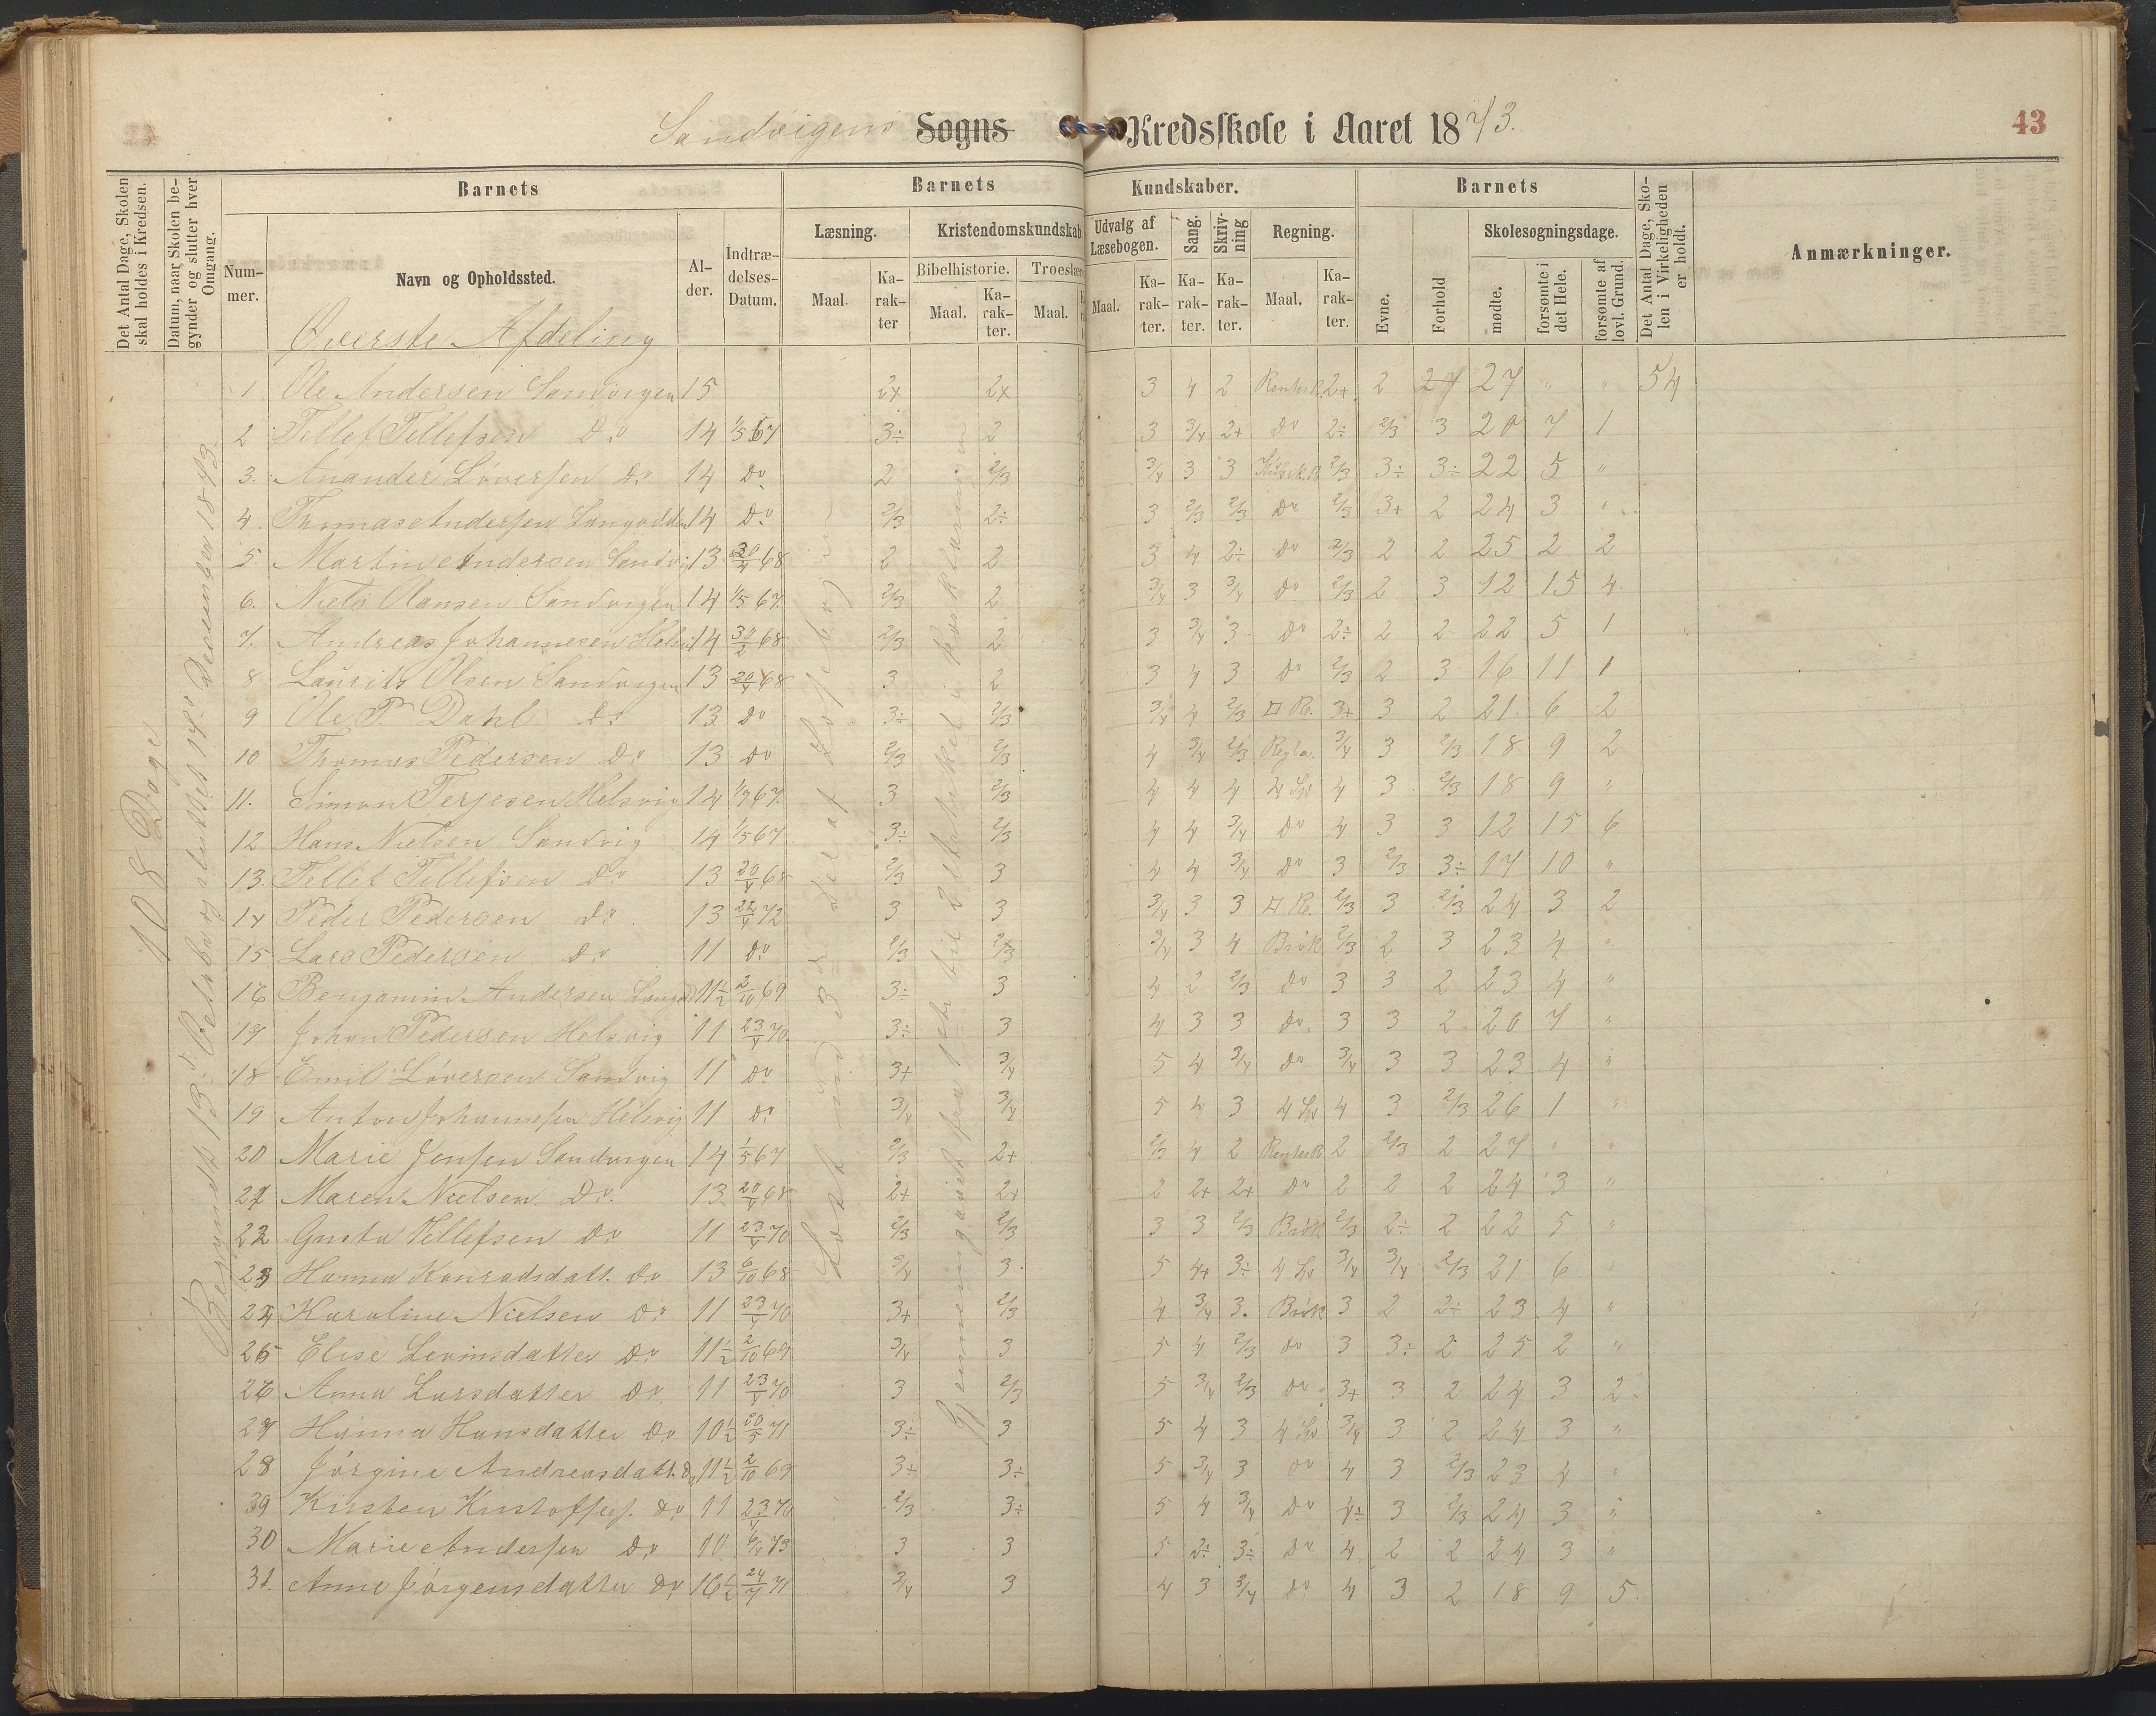 Sandvigens Sogns Kredsskole i Aaret 1873.
43
Det Antal Dage, Skolen skal holdes i Kredsen.
Datum, naar Skolen begynder og slutter hver Omgang.
Barnets
Barnets
Kundskaber.
Barnets
Det Antal Dage, Skolen i Virkeligheden er holdt.
Anmærkninger.
Nummer.
Navn og Opholdssted.
Alder.
Indtrædelses-Datum.
Læsning.
Kristendomskundskab
Udvalg af Læsebogen.
Sang.
Skrivning
Regning.
Evne.
Forhold
Skolesøgningsdage.
Maal.
Karakter
Bibelhistorie.
Troeslære
Maal.
Karakter.
Maal.
Maal.
Karakter.
Karakter.
Karakter.
Maal.
Karakter.
mødte.
forsømte i det Hele.
forsømte af lovl. Grund.
Øverste Afdeling
108 Dage
1 Ole Andersen Sandvigen 15 2+ 2+ 3 4 2 Rentesr. 2+ 2 27 27 " " 54
2 Tellef Tellefsen Do 14 1/5 67 3÷ 2 3 3/4 2+ Do 2÷ 2/3 3 20 7 1
3. Anander Løversen Do 14 Do 2 2/3 3/4 3 3 2/3 3÷ 3÷ 22 5 "
4. Thomas Andersen 14 Do 2/3 2÷ 3 2/3 2/3 Do 2/3 3+ 2 24 3 "
5. Martin Andersen Sandvi 13 20/4 68 2 2 3 4 2÷ Do 2/3 2 2 25 2 2
6. Niels Olansen Sandvigen 14 1/5 67. 2/3 2 3/4 3 3/4 Do 2/3 2 3 12 15 4
7. Andreas Johannesen Helsvi 14 30/2 68 2/3 2 3 3/4 3 Do 2÷ 2 2 22 5 1
8 Laurits Olsen Sandvigen 13 20/4 68 3 2 3 4 3 Do 2/3 2 3 16 11 1
9 Ole P. Dahl Do 13 Do 3÷ 2/3 3/4 4 2/3 □ R. 3+ 3 2 21 6 2
10. Thomas Pedersen Do 13 Do 2/3 2/3 4 3/4 2/3 3/4 3 2/3 18 9 2
11. Simon Terjesen Helsvig 14 67. 3 2/3 4 4 4 4 4 3 2/3 18 9 "
12 Hans Nielsen Sandvig 14 1/5 67 3÷ 2/3 4 4 3/4 Do 4 3 3 12 15 6
13. Tellef Tellefsen Do 13 20/4 68 2/3 3 4 4 3/4 Do 3 2/3 3÷ 17 10 "
14 Peder Pedersen Do 13 22/4 72 3 3 3/4 3 3 □ R. 2/3 3 2/3 24 3 2
15 Lars Pedersen Do 11 Do 2/3 2/3 3/4 3 4 Brøk 2/3 2 3 23 4 "
16 Benjamin Andersen 11½ 2/10 69 3÷ 3 4 2 2/3 Do 3 3 2 23 4 "
17 Johan Pedersen Helsvig 11 23/4 70. 3÷ 3 4 3 3 Do 3 3 2 20 7 "
18 Emil Løversen Sandvig 11 Do 3+ 3/4 5 4 3/4 Do 3/4 3 3 23 4 "
19 Anton Johannesen Helsvig 11 Do 3/4 3/4 5 4 3 4 3 2/3 26 1 "
20 Marie Jensen Sandvigen 14 1/5 67 2/3 2+ 2/3 4 2 RentesR 2 2/3 2 27 " "
21 Maren Nielsen Do. 13 20/4 68 2+ 2+ 2 2+ 2+ Do 2 2 2 24 3 "
22 Gusta Tellefsen Do 11 23/4 70 2/3 2/3 3 3 2/3 Brøk 2/3 2÷ 2 22 5 "
23 Hanna Konradsdatt. Do 13 6/10 68 3/4 3. 5 4+ 3÷ 3/4 3/4 2/3 21 6
24 Karoline Nielsen Do 11 23/4 70 3+ 2/3 4 3/4 3. Brøk 3 2 2÷ 23 4 "
25 Elise Levinsdatter Do 11½ 2/10 69 3/4 3 5 4 2/3 Do 3 3÷ 2 25 2 "
26 Anna Larsdatter Do 11 23/4 70 3 2/3 5 3/4 2/3 Do 3+ 3 2 24 3 2
27 Hanna Hansdatter Do 10½ 20/5 71 3÷ 3 5 4 3 3/4 3 2 24 3 "
28 Jørgine Andreasdatt. Do 11½ 2/10 69 3÷ 3÷ 5 3/4 3 Do 4 3 2/3 23 4 "
39 Kirsten Kristoffers. Do 11 23/4 70 2/3 3÷ 5 4 3/4 Do 4÷ 3 2/3 24 3 "
30 Marie Andersen Do 10 6/4 73 3 3 5 2÷ 3÷ Do 4 2 2 24 3 "
31. Anne Jørgensdatter Do 16½ 24/7 71 3/4 3 4 3 3/4 Do 4 3 2 18 9 5
Gjennemgaaet fra 1ste til 2 Artikel i Forklaringen